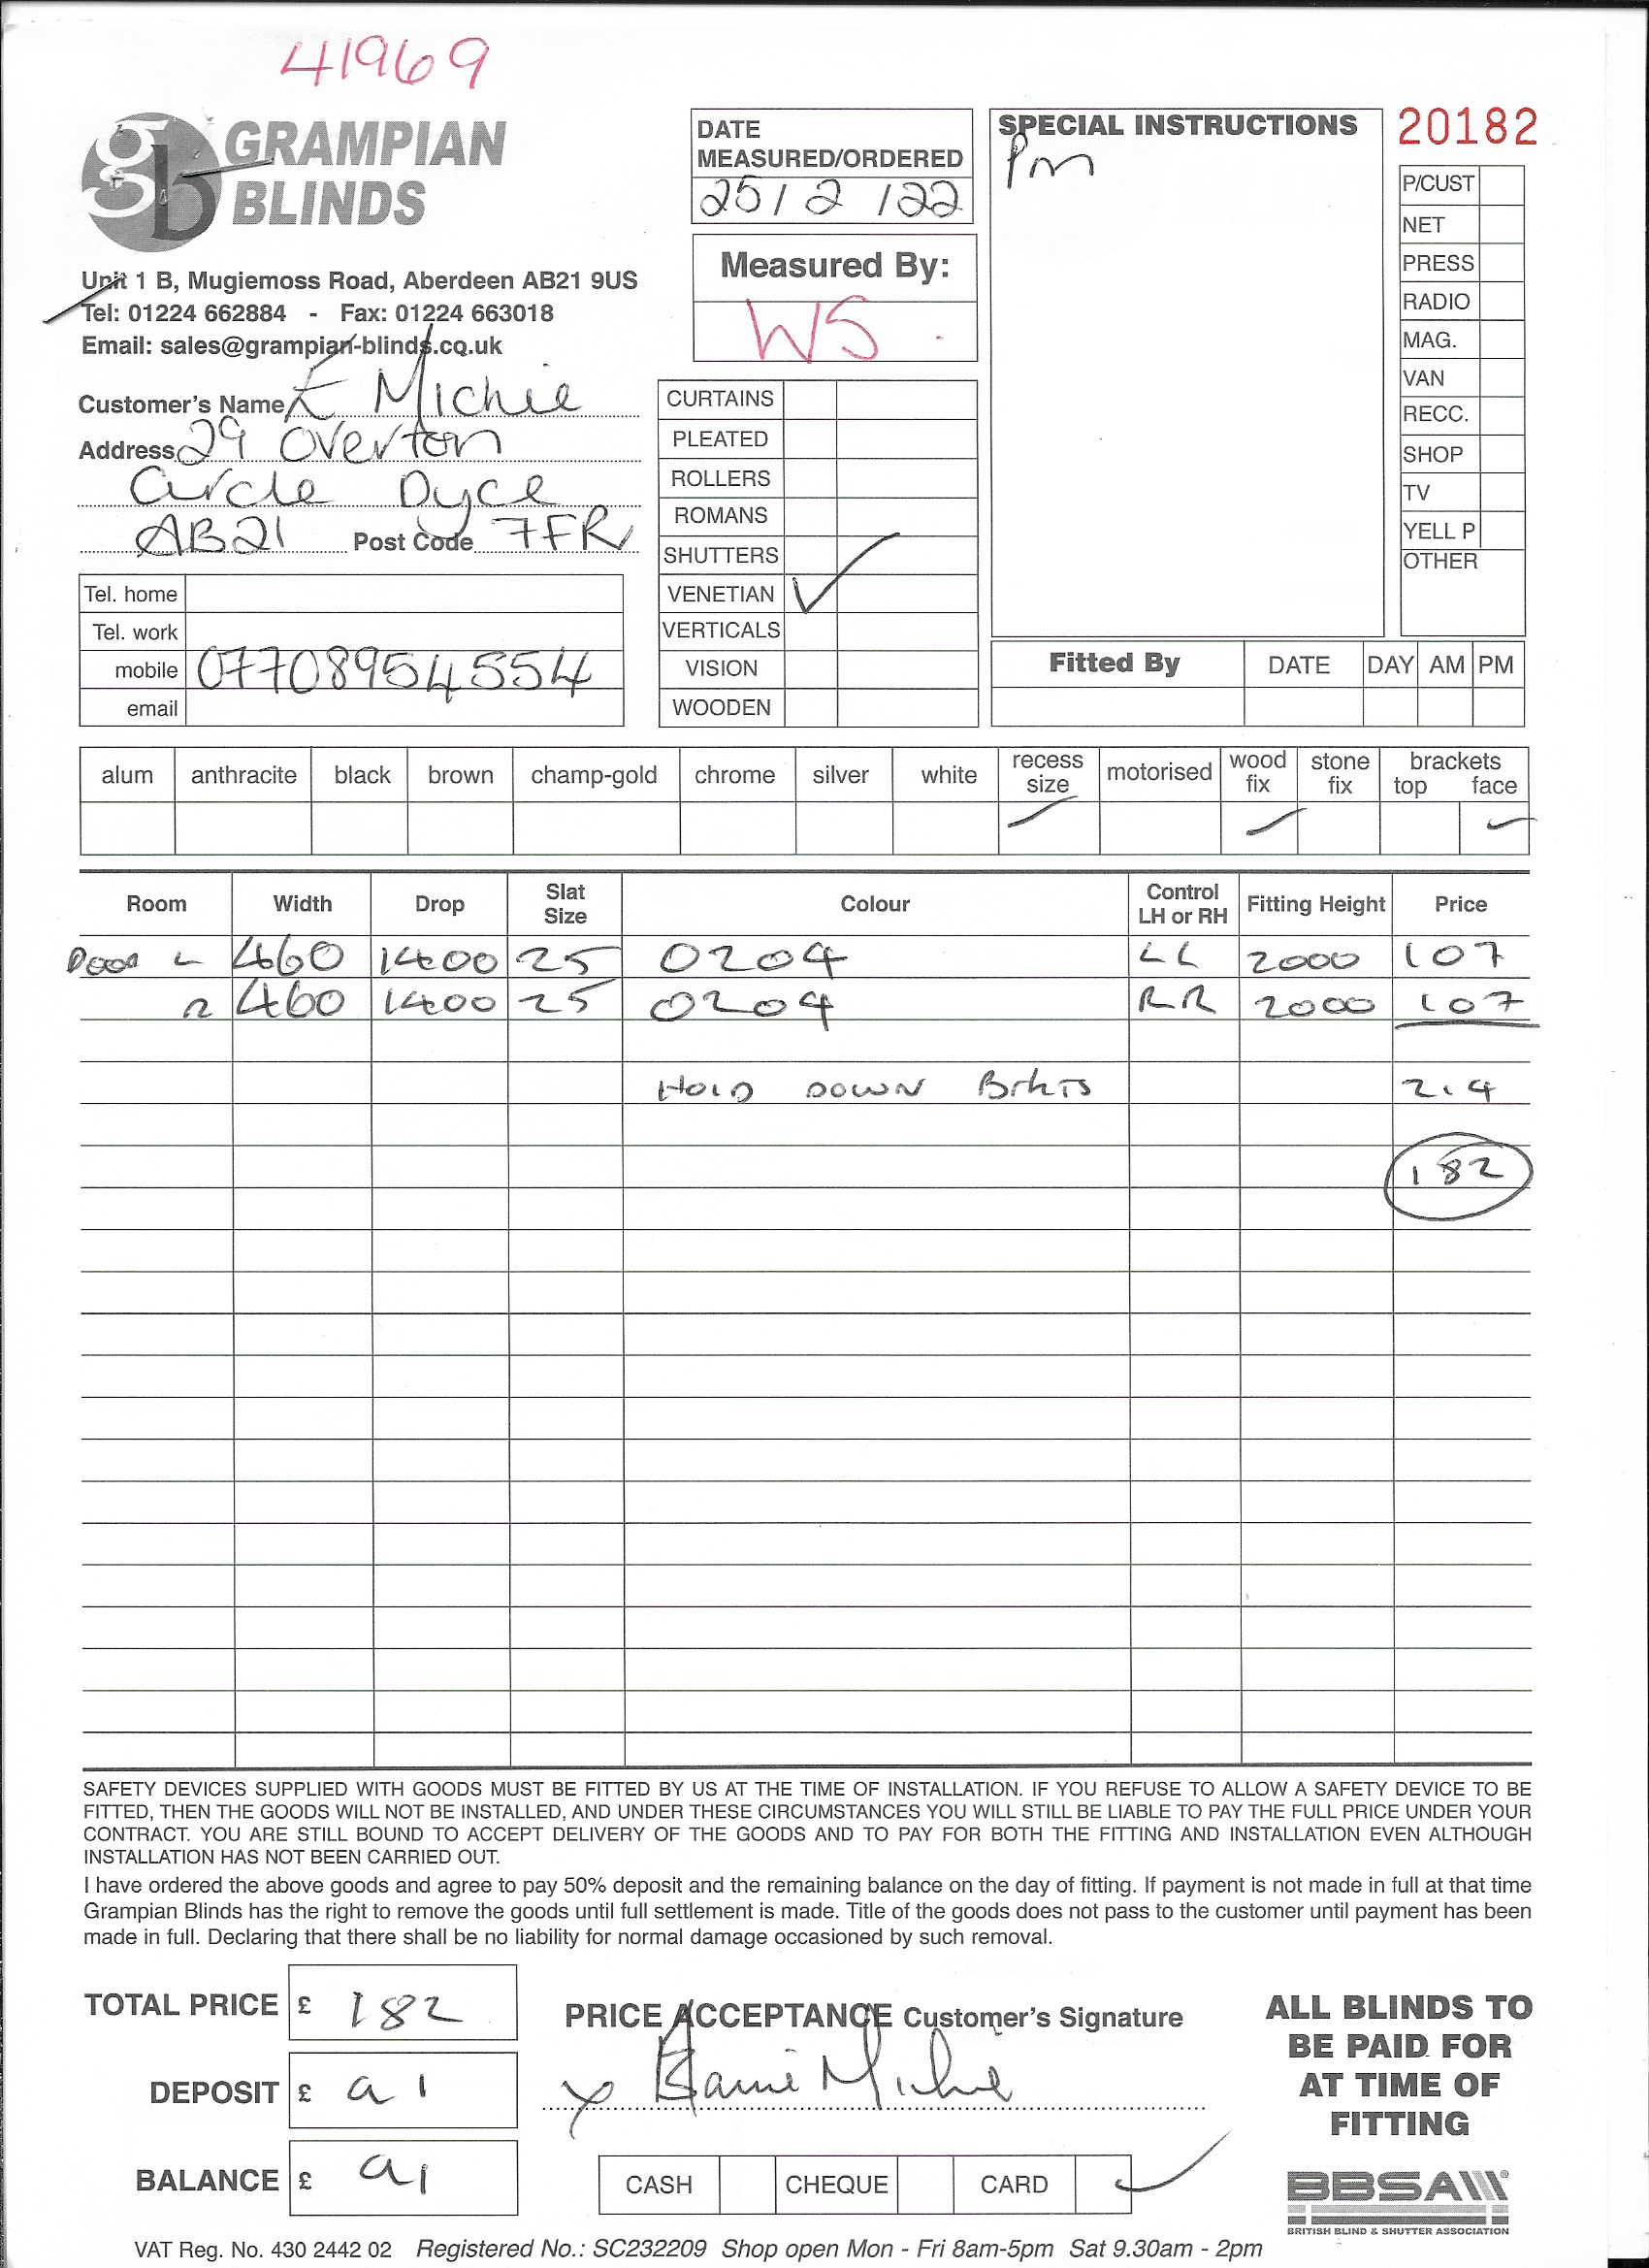 41969
gb GRAMPIAN
BLINDS
Unit 1 B, Mugiemoss Road, Aberdeen AB21 9US
Tel: 01224 662884 - Fax: 01224 663018
Email: sales@grampian-blinds.co.uk
Customer's Name E Michie
Address 29 Overton
Circle Dyce
AB21 Post Code 7FR
Tel. home
Tel. work
mobile 07708954554
email
DATE
MEASURED/ORDERED
25/2/22
Measured By:
WS
CURTAINS
PLEATED
ROLLERS
ROMANS
SHUTTERS
VENETIAN ✓
VERTICALS
VISION
WOODEN
SPECIAL INSTRUCTIONS
Pm
20182
P/CUST
NET
PRESS
RADIO
MAG.
VAN
RECC.
SHOP
TV
YELL P
OTHER
Fitted By DATE DAY AM PM
alum anthracite black brown champ-gold chrome silver white recess size motorised wood fix stone fix brackets top face
Room Width Drop Slat Size Colour Control LH or RH Fitting Height Price
Door L 460 1400 25 0204 LL 2000 107
R 460 1400 25 0204 RR 2000 107
HOLD DOWN BrkTS 2.4
182
SAFETY DEVICES SUPPLIED WITH GOODS MUST BE FITTED BY US AT THE TIME OF INSTALLATION. IF YOU REFUSE TO ALLOW A SAFETY DEVICE TO BE
FITTED, THEN THE GOODS WILL NOT BE INSTALLED, AND UNDER THESE CIRCUMSTANCES YOU WILL STILL BE LIABLE TO PAY THE FULL PRICE UNDER YOUR
CONTRACT. YOU ARE STILL BOUND TO ACCEPT DELIVERY OF THE GOODS AND TO PAY FOR BOTH THE FITTING AND INSTALLATION EVEN ALTHOUGH
INSTALLATION HAS NOT BEEN CARRIED OUT.
I have ordered the above goods and agree to pay 50% deposit and the remaining balance on the day of fitting. If payment is not made in full at that time
Grampian Blinds has the right to remove the goods until full settlement is made. Title of the goods does not pass to the customer until payment has been
made in full. Declaring that there shall be no liability for normal damage occasioned by such removal.
TOTAL PRICE £ 182
DEPOSIT £ 91
BALANCE £ 91
PRICE ACCEPTANCE Customer's Signature
x Michie
CASH CHEQUE CARD ✓
ALL BLINDS TO
BE PAID FOR
AT TIME OF
FITTING
BBSA
BRITISH BLIND & SHUTTER ASSOCIATION
VAT Reg. No. 430 2442 02 Registered No.: SC232209 Shop open Mon - Fri 8am-5pm Sat 9.30am - 2pm